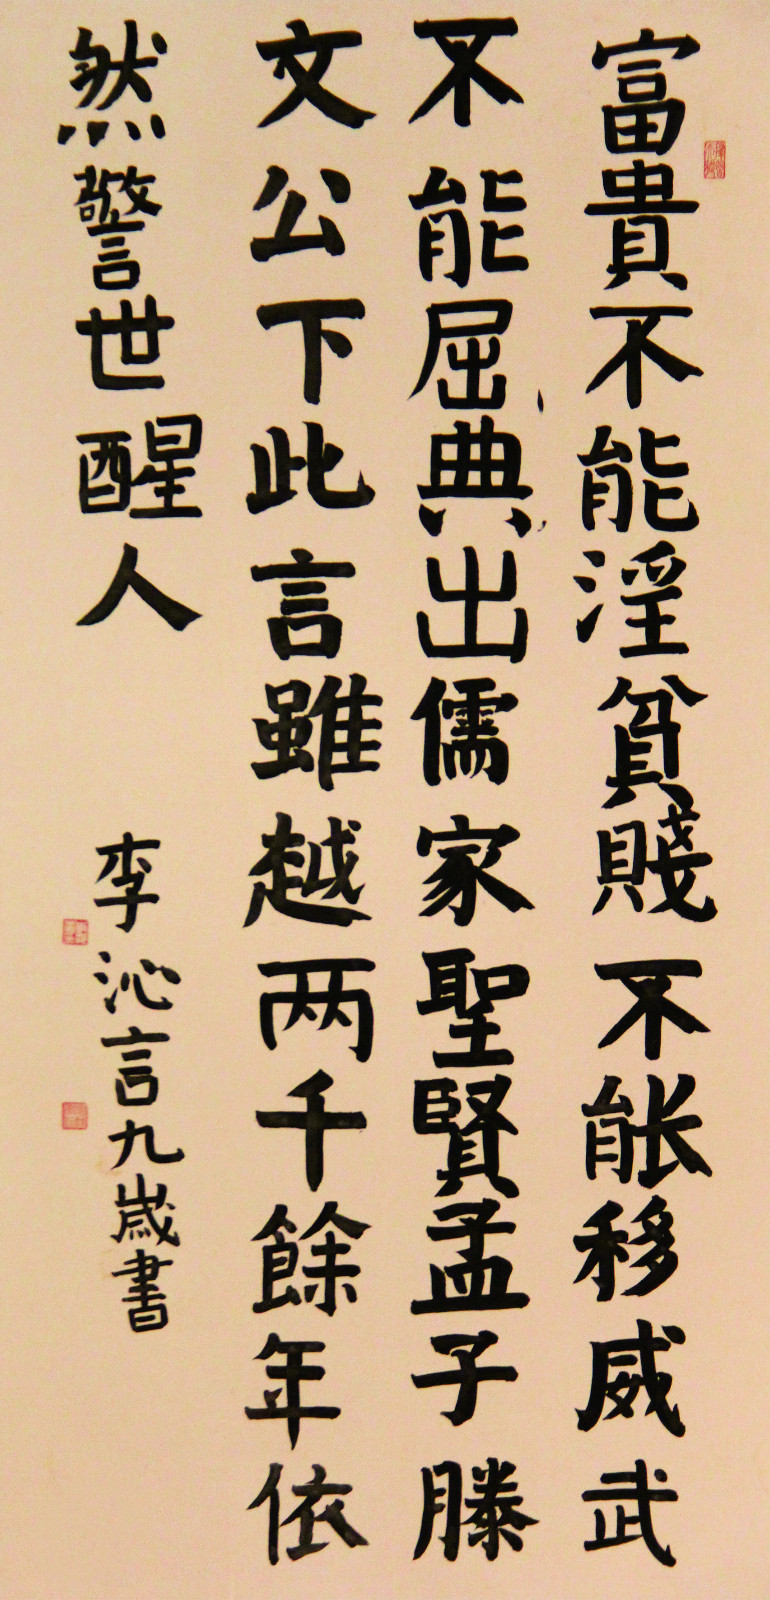 富貴不能淫貧賤不能移威武
不能屈典出儒家聖賢孟子滕
文公下此言雖越两千餘年依
然警世醒人
李沁言九歲書